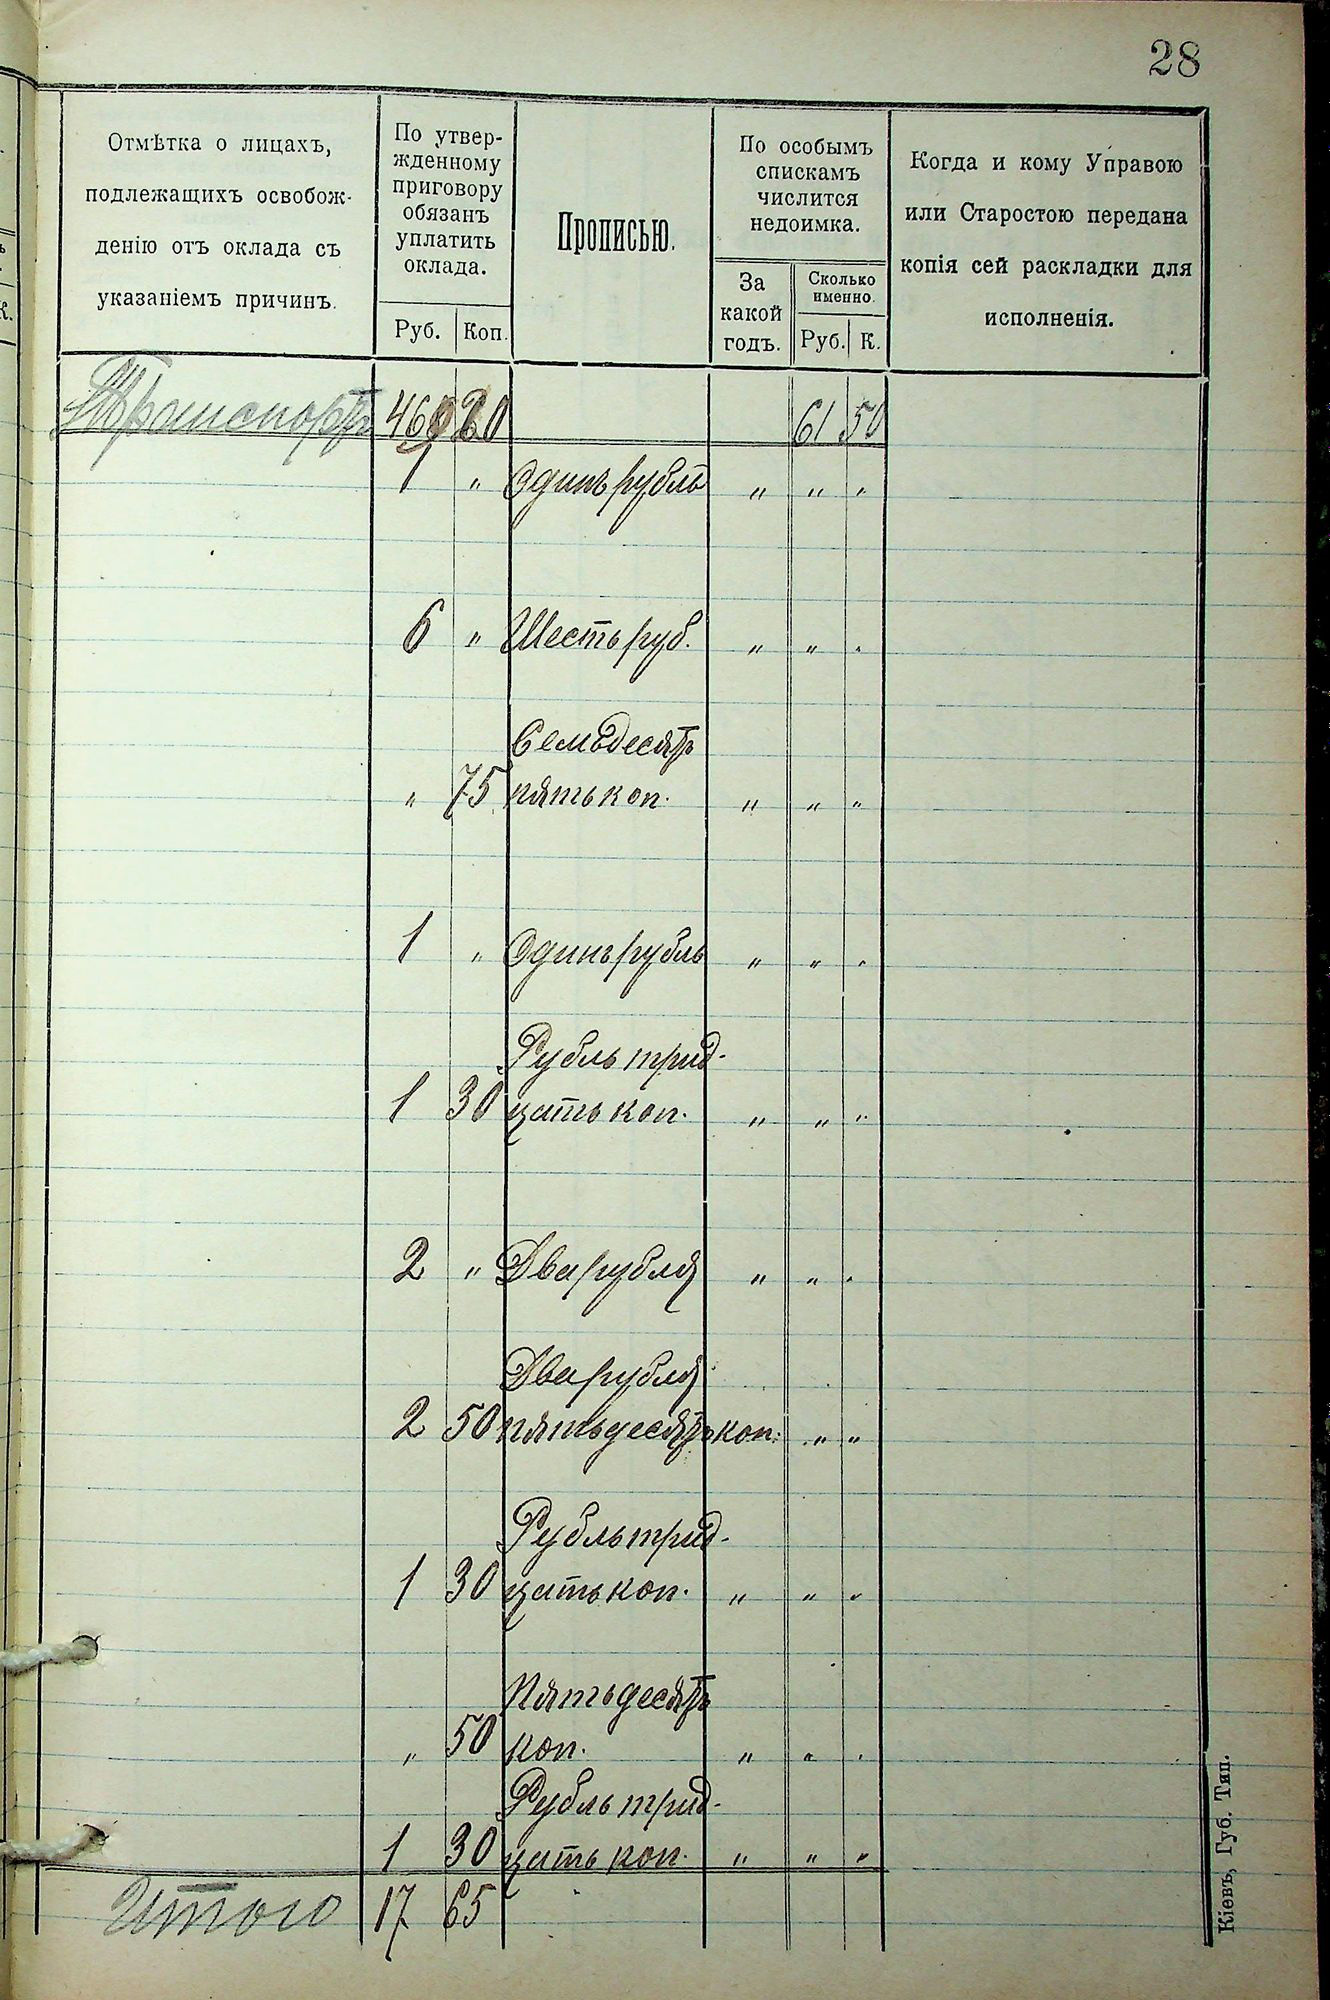 28
Отмѣтка о лицахъ,
подлежащихъ освобож-
денію отъ оклада съ
указаніемъ причинъ.
По утвер-
жденному
приговору
обязанъ
уплатить
оклада.
Руб. Коп.
Прописью.
По особымъ
спискамъ
числится
недоимка.
За
какой
годъ.
Сколько
именно.
Руб. К.
Когда и кому Управою
или Старостою передана
копія сей раскладки для
исполненія.
Транспортъ 61 50
1 " Одинъ рубль " " "
6 " Шесть руб. " " "
Семьдесятъ
" 75 пять коп. " " "
1 " Одинъ рубль " " "
Рубль трид-
1 30 цать коп. " " "
2 " Два рубля " " "
Два рубля
2 50 пятьдесятъ коп. " "
Рубль трид-
1 30 цать коп. " " "
Пятьдесятъ
" 50 коп. " " "
Рубль трид-
1 30 цать коп. " " "
Итого 17 65
Кіевъ, Губ. Тип.
К.